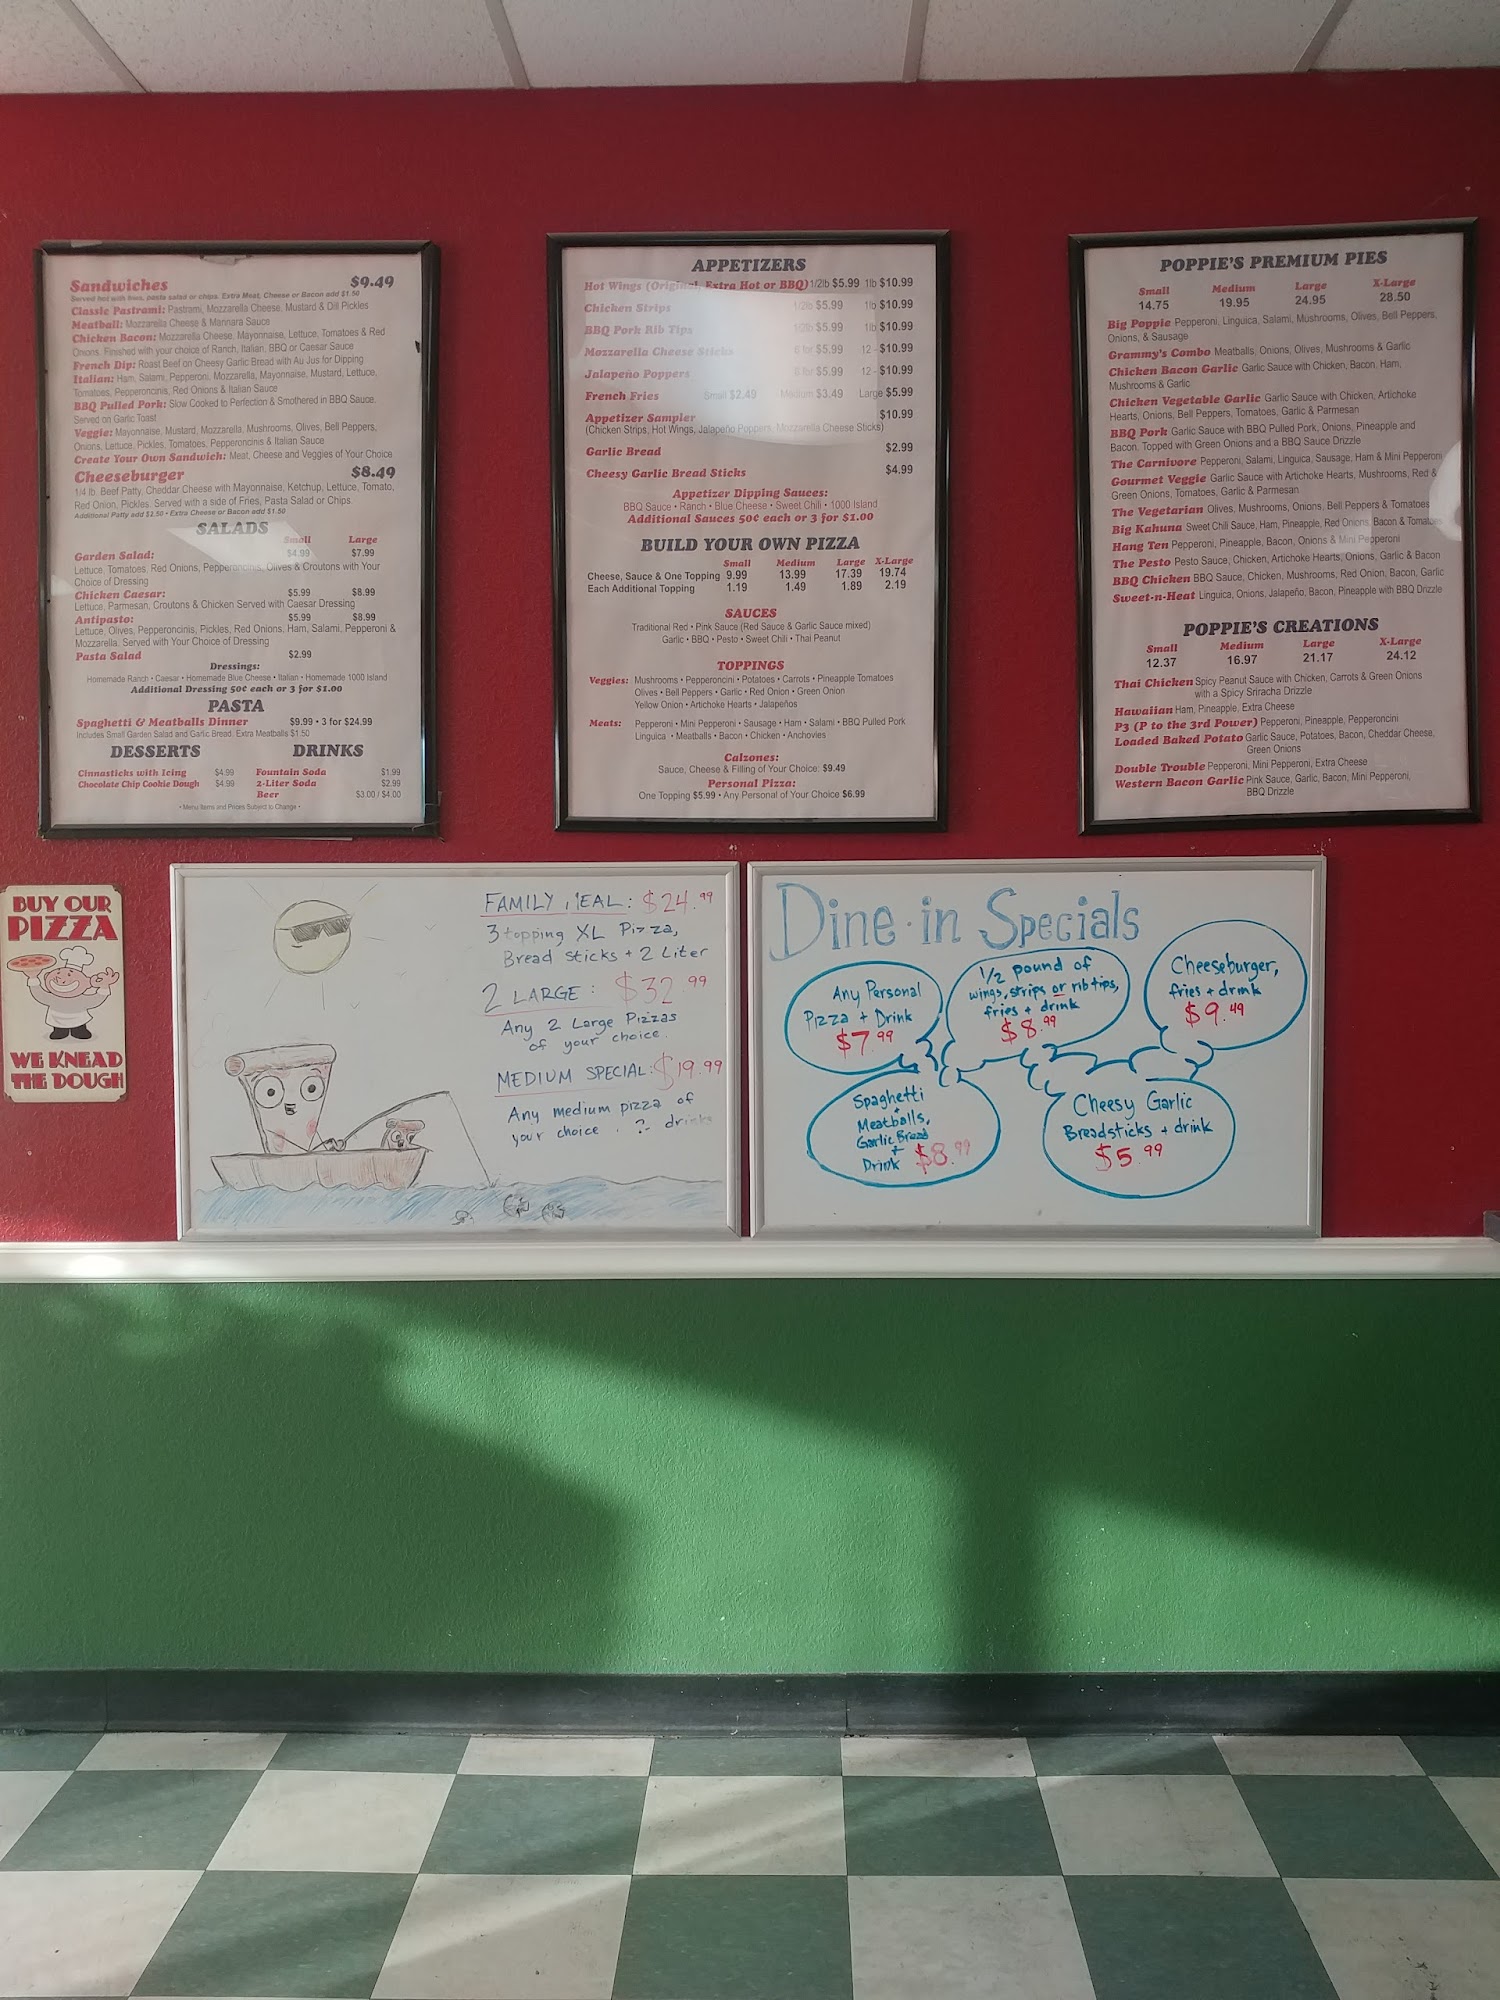 Sandwiches $9.49
Served hot with fries, pasta salad or chips. Extra Meat, Cheese or Bacon add $1.50
Classic Pastrami: Pastrami, Mozzarella Cheese, Mustard & Dill Pickles
Meatball: Mozzarella Cheese & Marinara Sauce
Chicken Bacon: Mozzarella Cheese, Mayonnaise, Lettuce, Tomatoes & Red
Onions. Finished with your choice of Ranch, Italian, BBQ or Caesar Sauce
French Dip: Roast Beef on Cheesy Garlic Bread with Au Jus for Dipping
Italian: Ham, Salami, Pepperoni, Mozzarella, Mayonnaise, Mustard, Lettuce,
Tomatoes, Pepperoncinis, Red Onions & Italian Sauce
BBQ Pulled Pork: Slow Cooked to Perfection & Smothered in BBQ Sauce.
Served on Garlic Toast
Veggie: Mayonnaise, Mustard, Mozzarella, Mushrooms, Olives, Bell Peppers,
Onions, Lettuce, Pickles, Tomatoes, Pepperoncinis & Italian Sauce
Create Your Own Sandwich: Meat, Cheese and Veggies of Your Choice
Cheeseburger $8.49
1/4 lb. Beef Patty, Cheddar Cheese with Mayonnaise, Ketchup, Lettuce, Tomato,
Red Onion, Pickles. Served with a side of Fries, Pasta Salad or Chips
Additional Patty add $2.50 • Extra Cheese or Bacon add $1.50
SALADS
Small Large
Garden Salad: $4.99 $7.99
Lettuce, Tomatoes, Red Onions, Pepperoncinis, Olives & Croutons with Your
Choice of Dressing
Chicken Caesar: $5.99 $8.99
Lettuce, Parmesan, Croutons & Chicken Served with Caesar Dressing
Antipasto: $5.99 $8.99
Lettuce, Olives, Pepperoncinis, Pickles, Red Onions, Ham, Salami, Pepperoni &
Mozzarella. Served with Your Choice of Dressing
Pasta Salad $2.99
Dressings:
Homemade Ranch • Caesar • Homemade Blue Cheese • Italian • Homemade 1000 Island
Additional Dressing 50¢ each or 3 for $1.00
PASTA
Spaghetti & Meatballs Dinner $9.99 • 3 for $24.99
Includes Small Garden Salad and Garlic Bread. Extra Meatballs $1.50
DESSERTS DRINKS
Cinnasticks with Icing $4.99 Fountain Soda $1.99
Chocolate Chip Cookie Dough $4.99 2-Liter Soda $2.99
Beer $3.00 / $4.00
• Menu Items and Prices Subject to Change •
APPETIZERS
Hot Wings (Original, Extra Hot or BBQ) 1/2lb $5.99 1lb $10.99
Chicken Strips 1/2lb $5.99 1lb $10.99
BBQ Pork Rib Tips 1/2lb $5.99 1lb $10.99
Mozzarella Cheese Sticks 6 for $5.99 12 - $10.99
Jalapeño Poppers 6 for $5.99 12 - $10.99
French Fries Small $2.49 Medium $3.49 Large $5.99
Appetizer Sampler $10.99
(Chicken Strips, Hot Wings, Jalapeño Poppers, Mozzarella Cheese Sticks)
Garlic Bread $2.99
Cheesy Garlic Bread Sticks $4.99
Appetizer Dipping Sauces:
BBQ Sauce • Ranch • Blue Cheese • Sweet Chili • 1000 Island
Additional Sauces 50¢ each or 3 for $1.00
BUILD YOUR OWN PIZZA
Small Medium Large X-Large
Cheese, Sauce & One Topping 9.99 13.99 17.39 19.74
Each Additional Topping 1.19 1.49 1.89 2.19
SAUCES
Traditional Red • Pink Sauce (Red Sauce & Garlic Sauce mixed)
Garlic • BBQ • Pesto • Sweet Chili • Thai Peanut
TOPPINGS
Veggies: Mushrooms • Pepperoncini • Potatoes • Carrots • Pineapple Tomatoes
Olives • Bell Peppers • Garlic • Red Onion • Green Onion
Yellow Onion • Artichoke Hearts • Jalapeños
Meats: Pepperoni • Mini Pepperoni • Sausage • Ham • Salami • BBQ Pulled Pork
Linguica • Meatballs • Bacon • Chicken • Anchovies
Calzones:
Sauce, Cheese & Filling of Your Choice: $9.49
Personal Pizza:
One Topping $5.99 • Any Personal of Your Choice $6.99
POPPIE'S PREMIUM PIES
Small Medium Large X-Large
14.75 19.95 24.95 28.50
Big Poppie Pepperoni, Linguica, Salami, Mushrooms, Olives, Bell Peppers,
Onions, & Sausage
Grammy's Combo Meatballs, Onions, Olives, Mushrooms & Garlic
Chicken Bacon Garlic Garlic Sauce with Chicken, Bacon, Ham,
Mushrooms & Garlic
Chicken Vegetable Garlic Garlic Sauce with Chicken, Artichoke
Hearts, Onions, Bell Peppers, Tomatoes, Garlic & Parmesan
BBQ Pork Garlic Sauce with BBQ Pulled Pork, Onions, Pineapple and
Bacon, Topped with Green Onions and a BBQ Sauce Drizzle
The Carnivore Pepperoni, Salami, Linguica, Sausage, Ham & Mini Pepperoni
Gourmet Veggie Garlic Sauce with Artichoke Hearts, Mushrooms, Red &
Green Onions, Tomatoes, Garlic & Parmesan
The Vegetarian Olives, Mushrooms, Onions, Bell Peppers & Tomatoes
Big Kahuna Sweet Chili Sauce, Ham, Pineapple, Red Onions, Bacon & Tomatoes
Hang Ten Pepperoni, Pineapple, Bacon, Onions & Mini Pepperoni
The Pesto Pesto Sauce, Chicken, Artichoke Hearts, Onions, Garlic & Bacon
BBQ Chicken BBQ Sauce, Chicken, Mushrooms, Red Onion, Bacon, Garlic
Sweet-n-Heat Linguica, Onions, Jalapeño, Bacon, Pineapple with BBQ Drizzle
POPPIE'S CREATIONS
Small Medium Large X-Large
12.37 16.97 21.17 24.12
Thai Chicken Spicy Peanut Sauce with Chicken, Carrots & Green Onions
with a Spicy Sriracha Drizzle
Hawaiian Ham, Pineapple, Extra Cheese
P3 (P to the 3rd Power) Pepperoni, Pineapple, Pepperoncini
Loaded Baked Potato Garlic Sauce, Potatoes, Bacon, Cheddar Cheese,
Green Onions
Double Trouble Pepperoni, Mini Pepperoni, Extra Cheese
Western Bacon Garlic Pink Sauce, Garlic, Bacon, Mini Pepperoni,
BBQ Drizzle
BUY OUR
PIZZA
WE KNEAD
THE DOUGH
FAMILY MEAL: $24.99
3 topping XL Pizza,
Bread sticks + 2 Liter
2 LARGE: $32.99
Any 2 Large Pizzas
of your choice.
MEDIUM SPECIAL: $19.99
Any medium pizza of
your choice. 2 drinks
Dine-in Specials
Any Personal
Pizza + Drink
$7.99
1/2 pound of
wings, strips or rib tips,
fries + drink
$8.99
Cheeseburger,
fries + drink
$9.49
Spaghetti
+
Meatballs,
Garlic Bread
+
Drink $8.99
Cheesy Garlic
Breadsticks + drink
$5.99